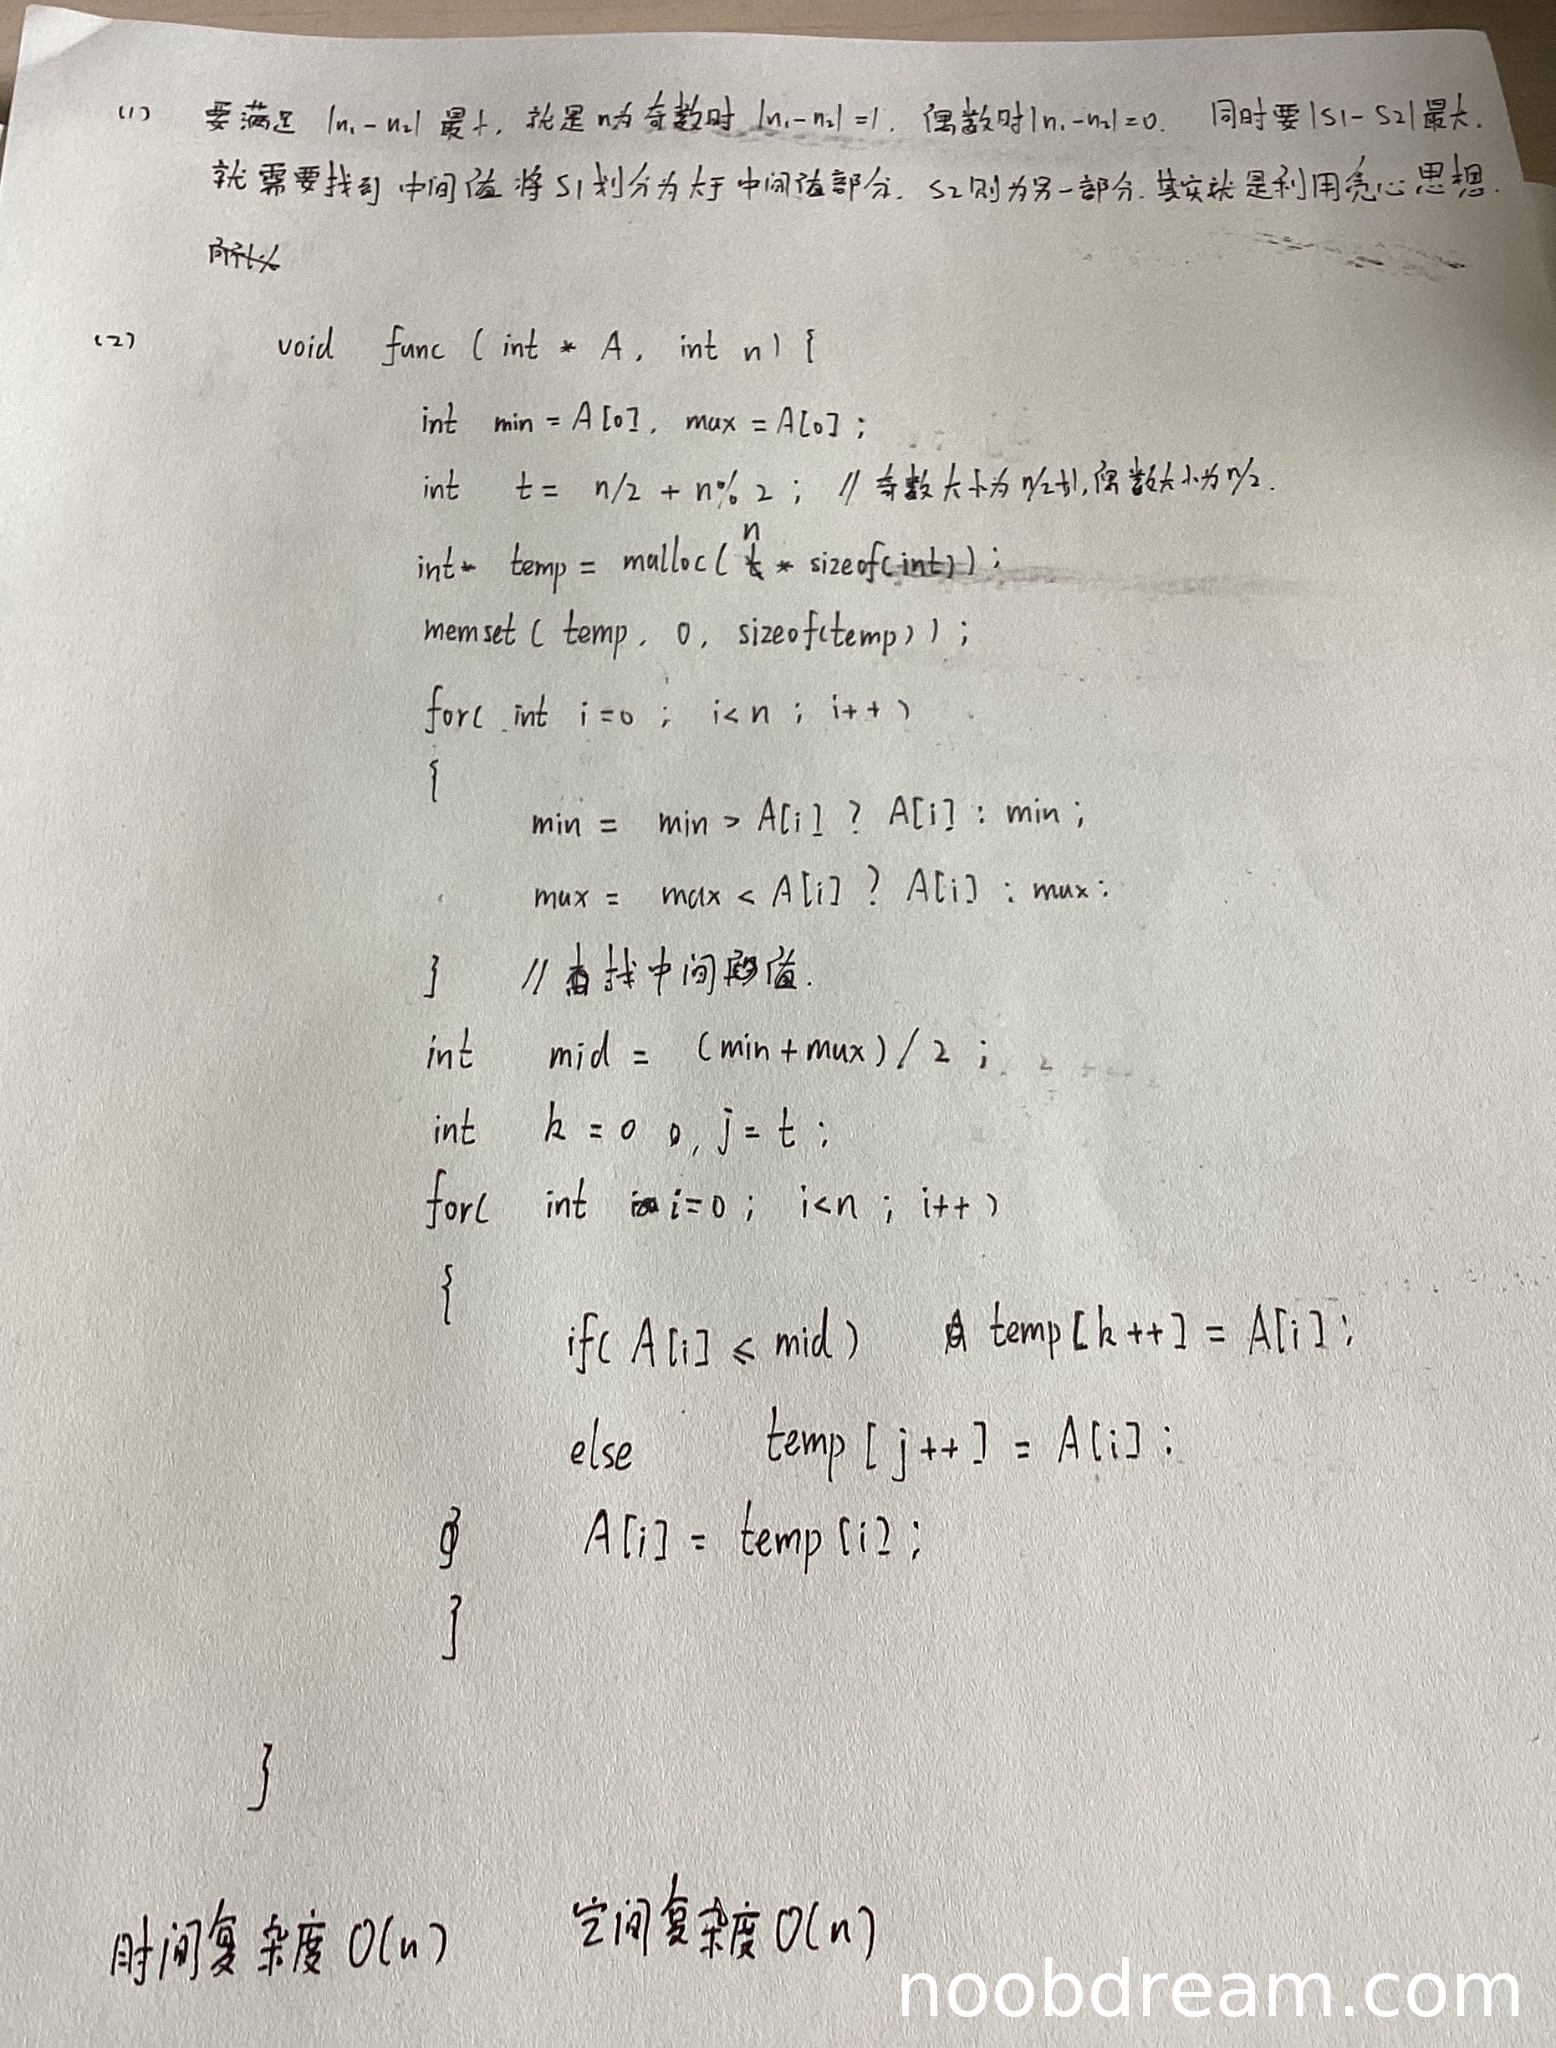 (1) 要满足 |n₁-n₂| 最小, 就是n为奇数时 |n₁-n₂|=1, 偶数时|n₁-n₂|=0. 同时要|S1-S2|最大.
就需要找到中间值将S1划分为大于中间值部分. S2则为另一部分. 其实就是利用贪心思想.
所以
(2) void func ( int * A, int n) {
int min = A[0], max = A[0];
int t = n/2 + n%2; // 奇数大小为n/2+1,偶数大小为n/2.
int* temp = malloc( n * sizeof(int));
memset( temp, 0, sizeof(temp));
for( int i=0; i<n; i++)
{
min = min > A[i] ? A[i] : min;
max = max < A[i] ? A[i] : max;
} // 查找中间值.
int mid = (min+max)/2;
int k = 0, j = t;
for( int i=0; i<n; i++)
{
if( A[i] ≤ mid) temp[k++] = A[i];
else temp[j++] = A[i];
A[i] = temp[i];
}
}
时间复杂度 O(n) 空间复杂度 O(n)
noobdream.com